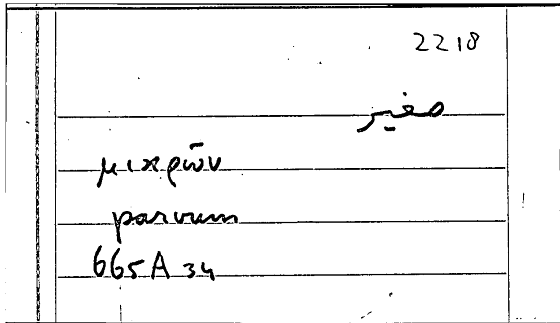 2218
صغير
μικρῶν
parvum
665A 34